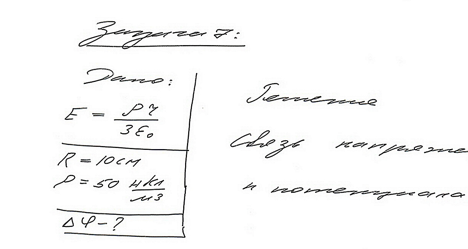 Задача 7:
Дано:
E = ρr / 3ε₀
R = 10 см
ρ = 50 нКл/м³
Δφ - ?
Решение
Связь напряже
и потенциала